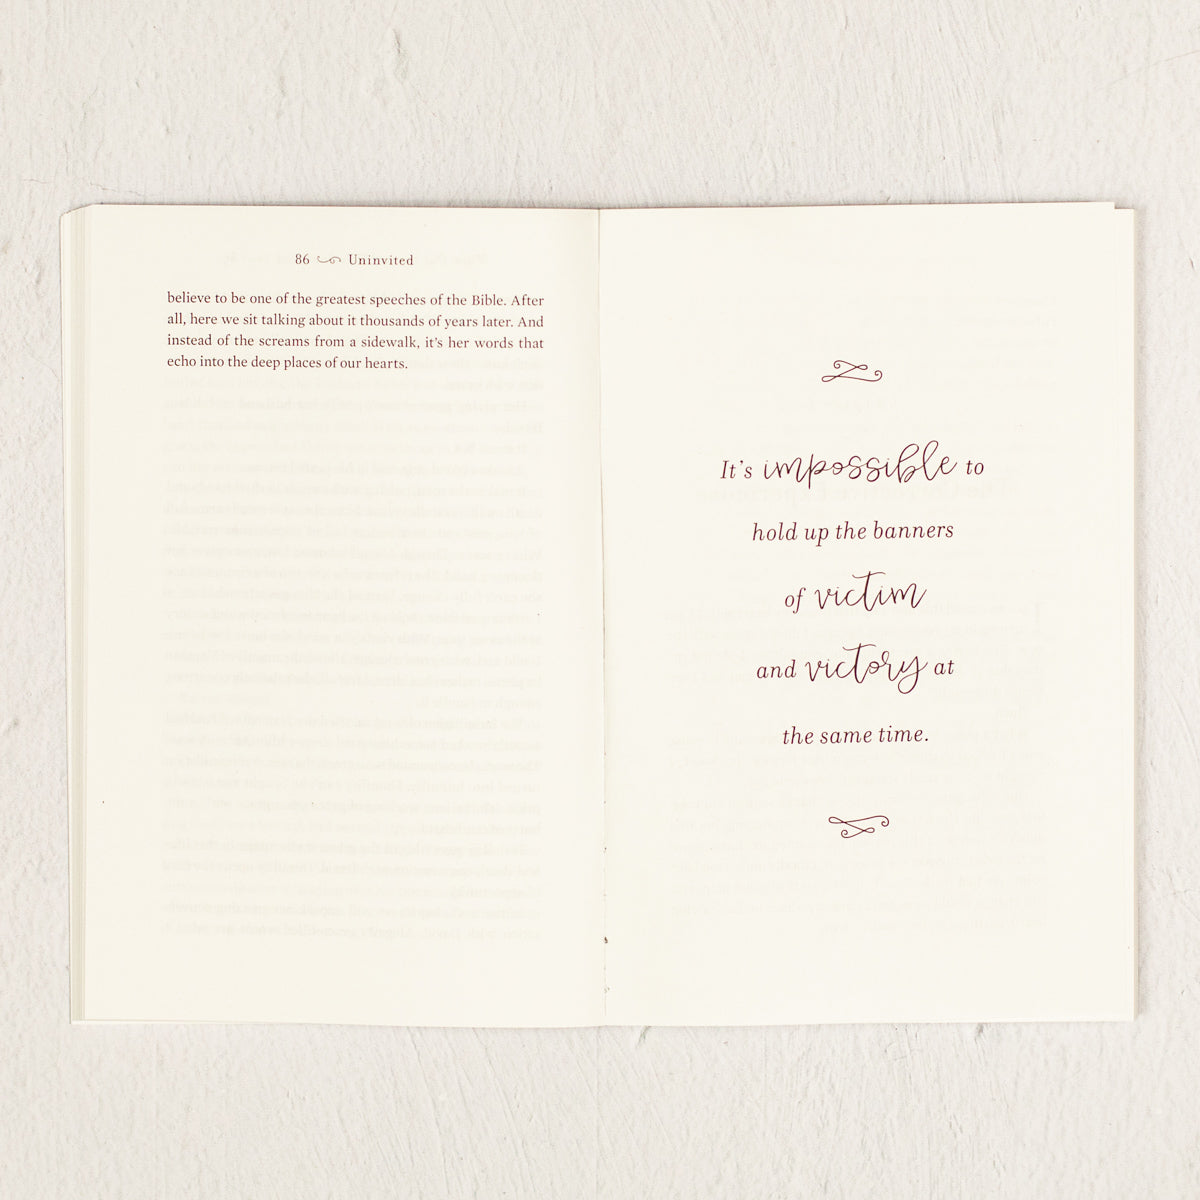 86 Uninvited
believe to be one of the greatest speeches of the Bible. After
all, here we sit talking about it thousands of years later. And
instead of the screams from a sidewalk, it's her words that
echo into the deep places of our hearts.
It's impossible to
hold up the banners
of victim
and victory at
the same time.